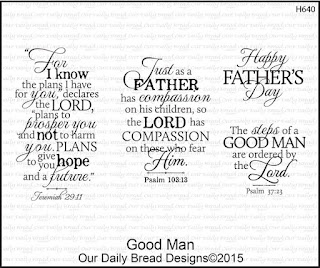 H640
"For
I know
the plans I have
for you," declares
the LORD,
"plans to
prosper you
and not to harm
you. PLANS
to give you hope
and a future."
Jeremiah 29:11
Just as a
FATHER
has compassion
on his children, so
the LORD has
COMPASSION
on those who fear
Him.
Psalm 103:13
Happy
FATHER'S
Day
The steps of a
GOOD MAN
are ordered
by the
Lord.
Psalm 37:23
Good Man
Our Daily Bread Designs©2015